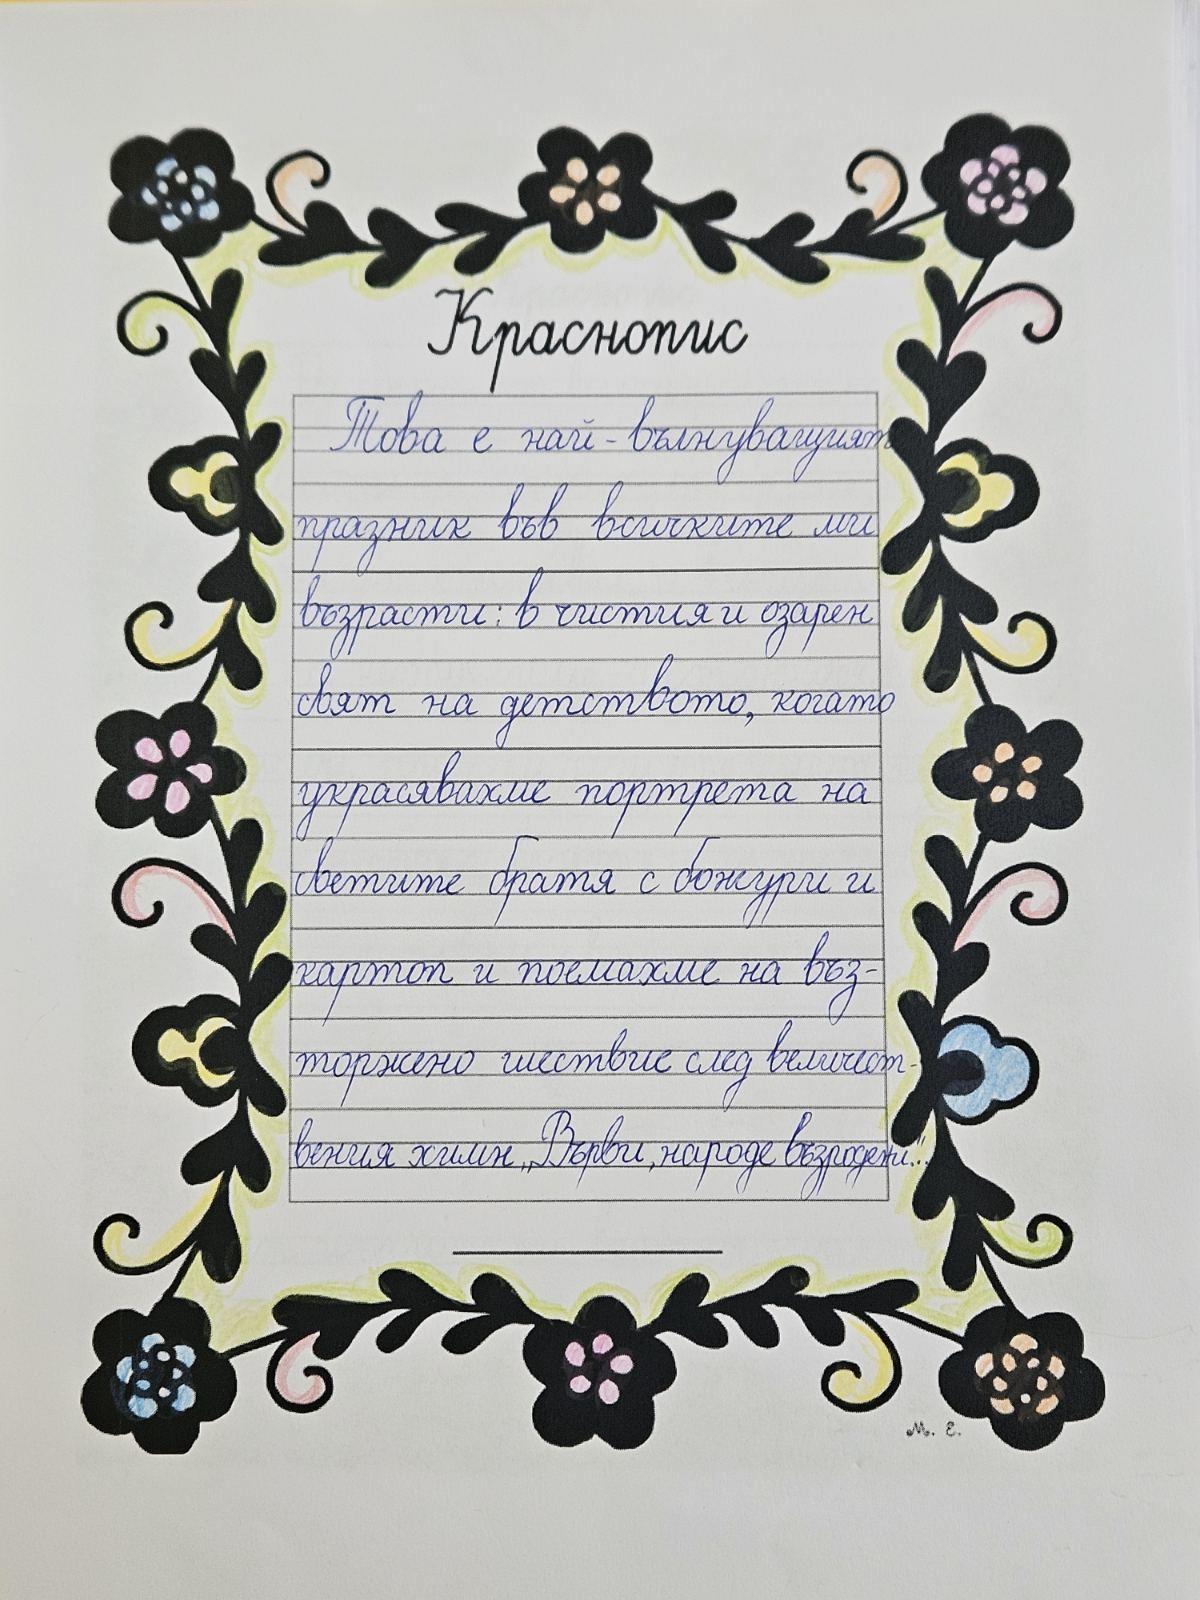 Краснопис
Това е най-вълнуващият
празник във всичките ми
възрасти: в чистия и озарен
свят на детството, когато
украсявахме портрета на
светите братя с божури и
картоп и поемахме на въз-
торжено шествие след величест-
вения химн „Върви, народе възродени..."
М. Е.